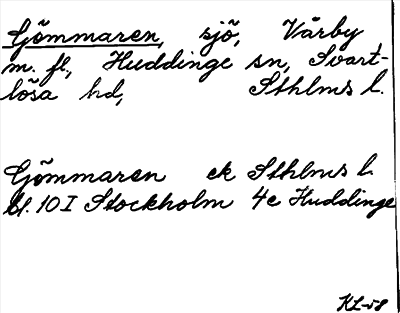 Gömmaren, sjö, Vårby
m. fl., Huddinge sn, Svart-
lösa hd, Sthlms l.
Gömmaren ek Sthlms l.
bl. 10 I Stockholm 4e Huddinge
KL-58